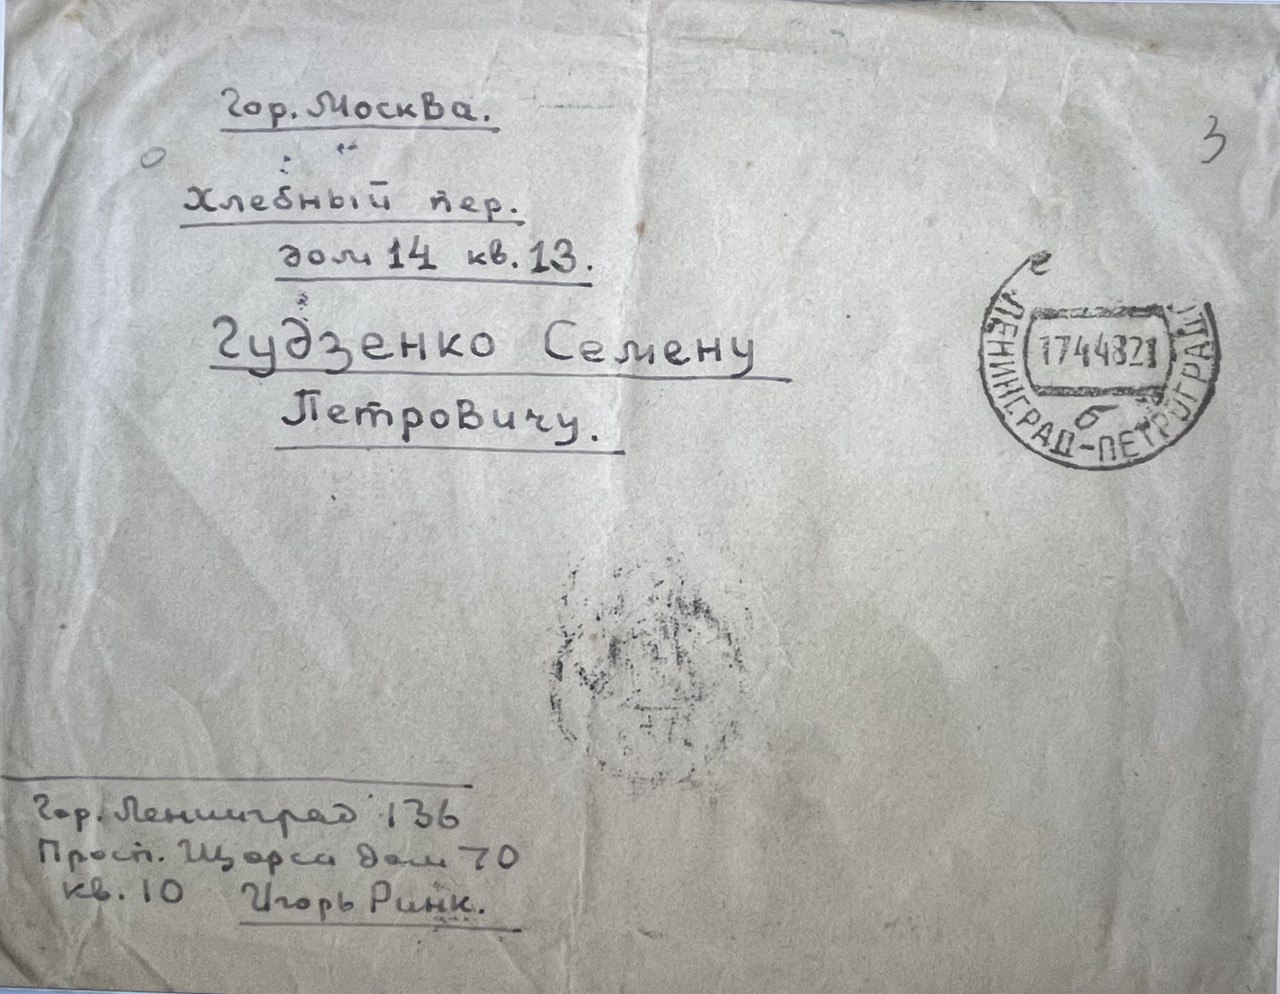 Гор. Москва.
Хлебный пер.
дом 14 кв. 13.
Гудзенко Семену
Петровичу.
3
ЛЕНИНГРАД-ПЕТРОГРАД
1744821
б
Гор. Ленинград 136
Просп. Щорса дом 70
кв. 10 Игорь Ринк.